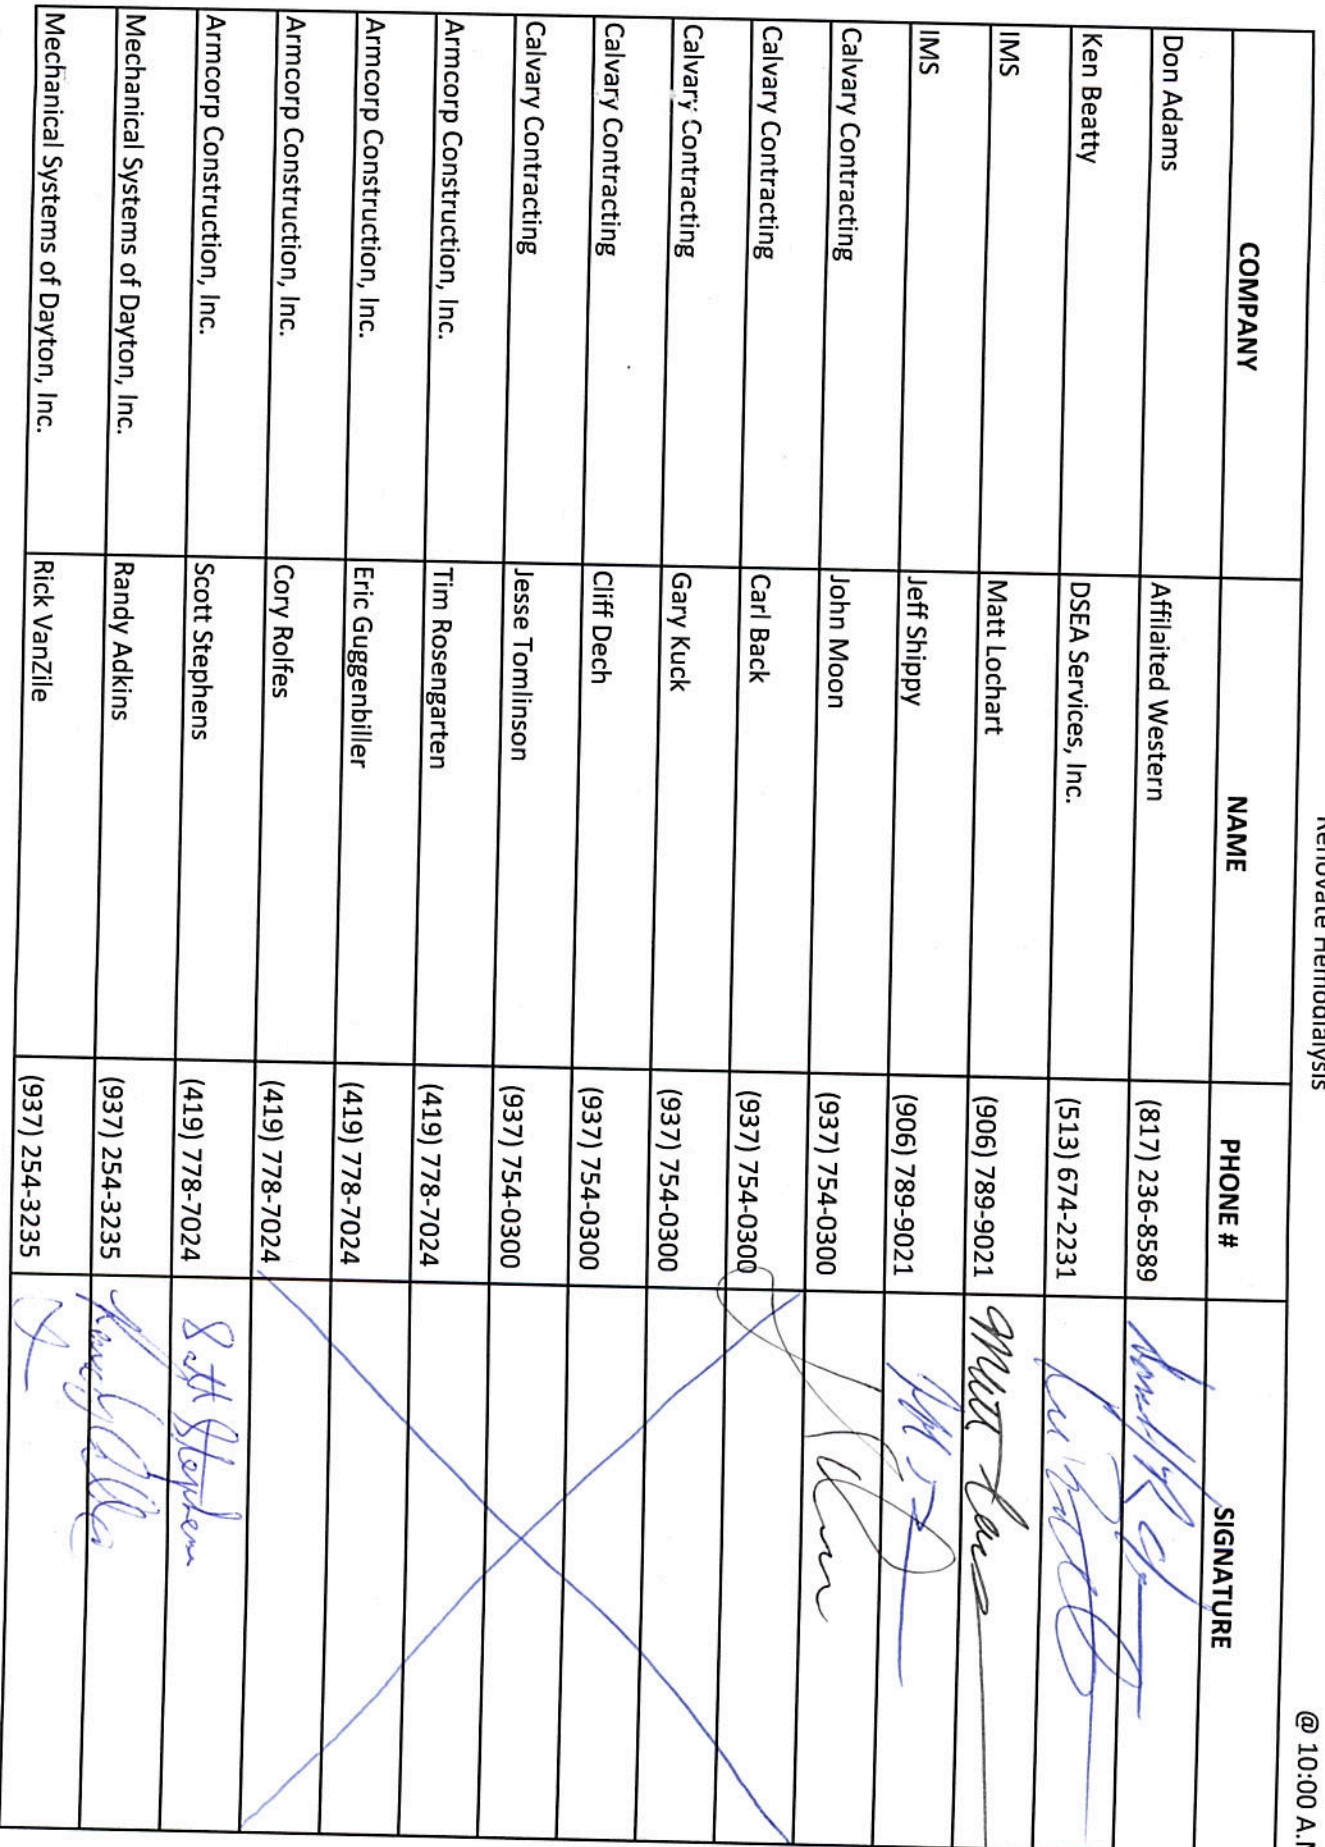 Renovate Hemodialysis
@ 10:00 A.
COMPANY NAME PHONE # SIGNATURE
Don Adams Affilaited Western (817) 236-8589
Ken Beatty DSEA Services, Inc. (513) 674-2231
IMS Matt Lochart (906) 789-9021
IMS Jeff Shippy (906) 789-9021
Calvary Contracting John Moon (937) 754-0300
Calvary Contracting Carl Back (937) 754-0300
Calvary Contracting Gary Kuck (937) 754-0300
Calvary Contracting Cliff Dech (937) 754-0300
Calvary Contracting Jesse Tomlinson (937) 754-0300
Armcorp Construction, Inc. Tim Rosengarten (419) 778-7024
Armcorp Construction, Inc. Eric Guggenbiller (419) 778-7024
Armcorp Construction, Inc. Cory Rolfes (419) 778-7024
Armcorp Construction, Inc. Scott Stephens (419) 778-7024 Scott Stephens
Mechanical Systems of Dayton, Inc. Randy Adkins (937) 254-3235
Mechanical Systems of Dayton, Inc. Rick VanZile (937) 254-3235